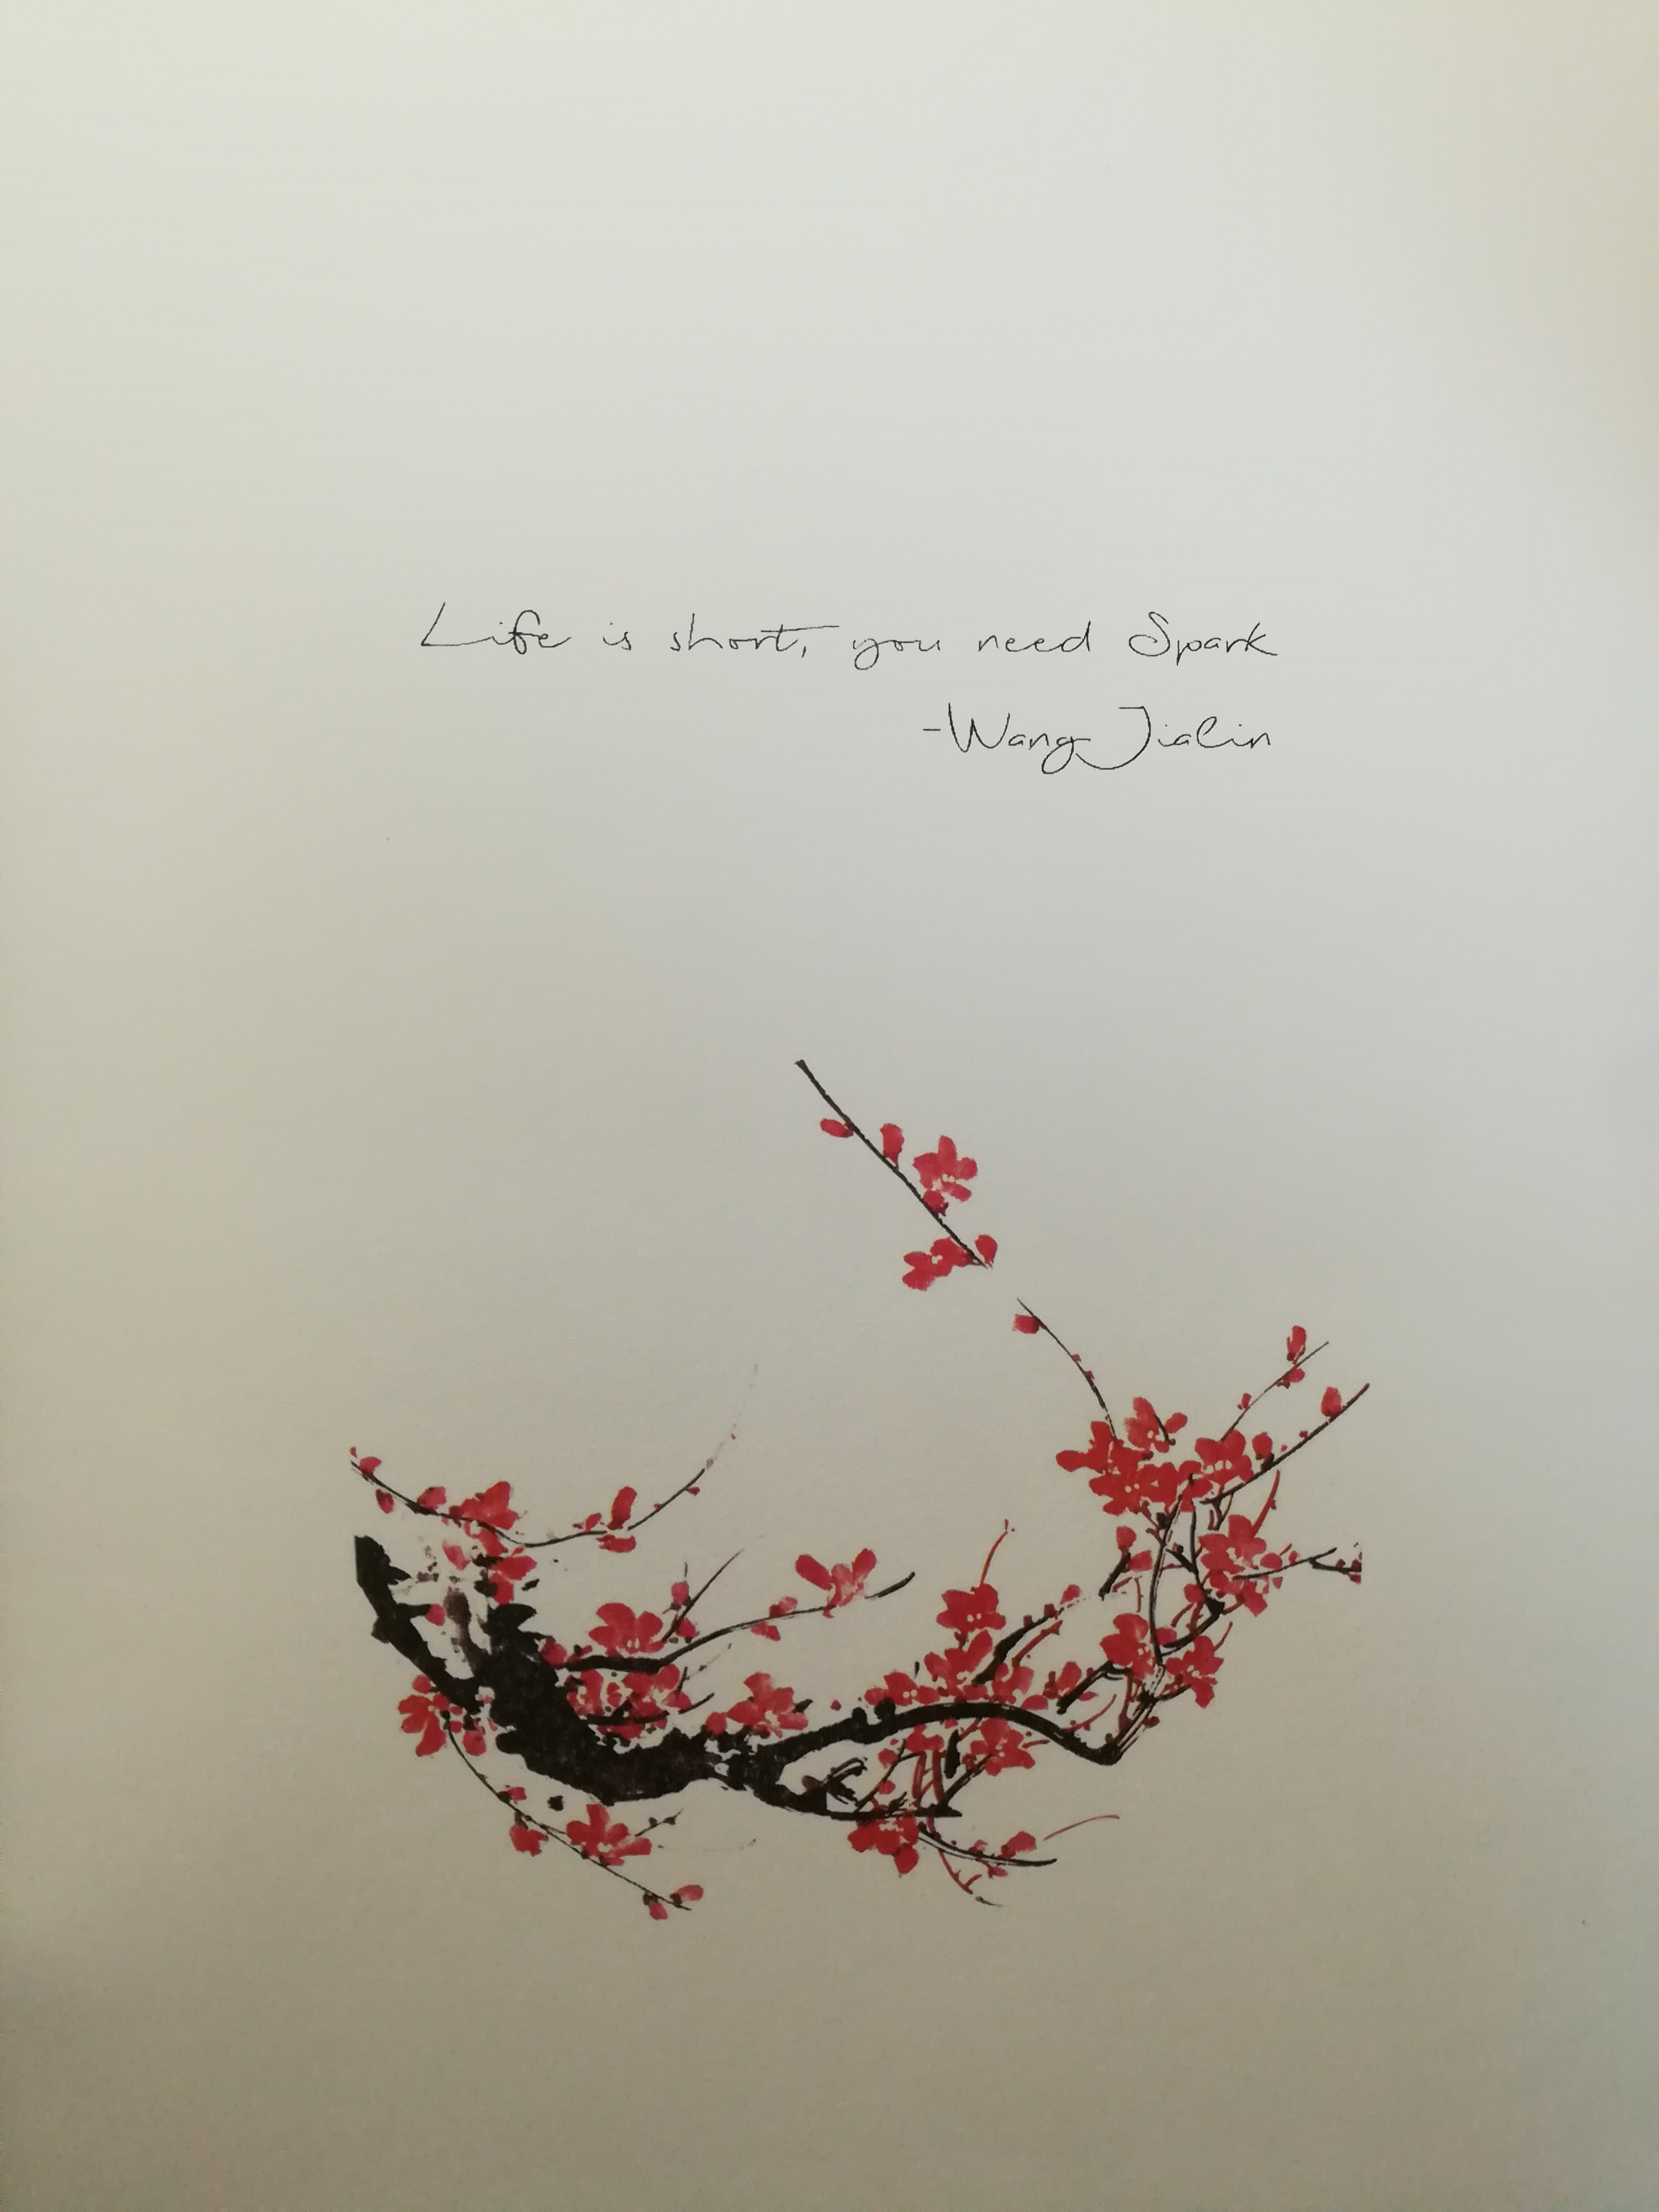 Life is short, you need Spark
-Wang Jialin